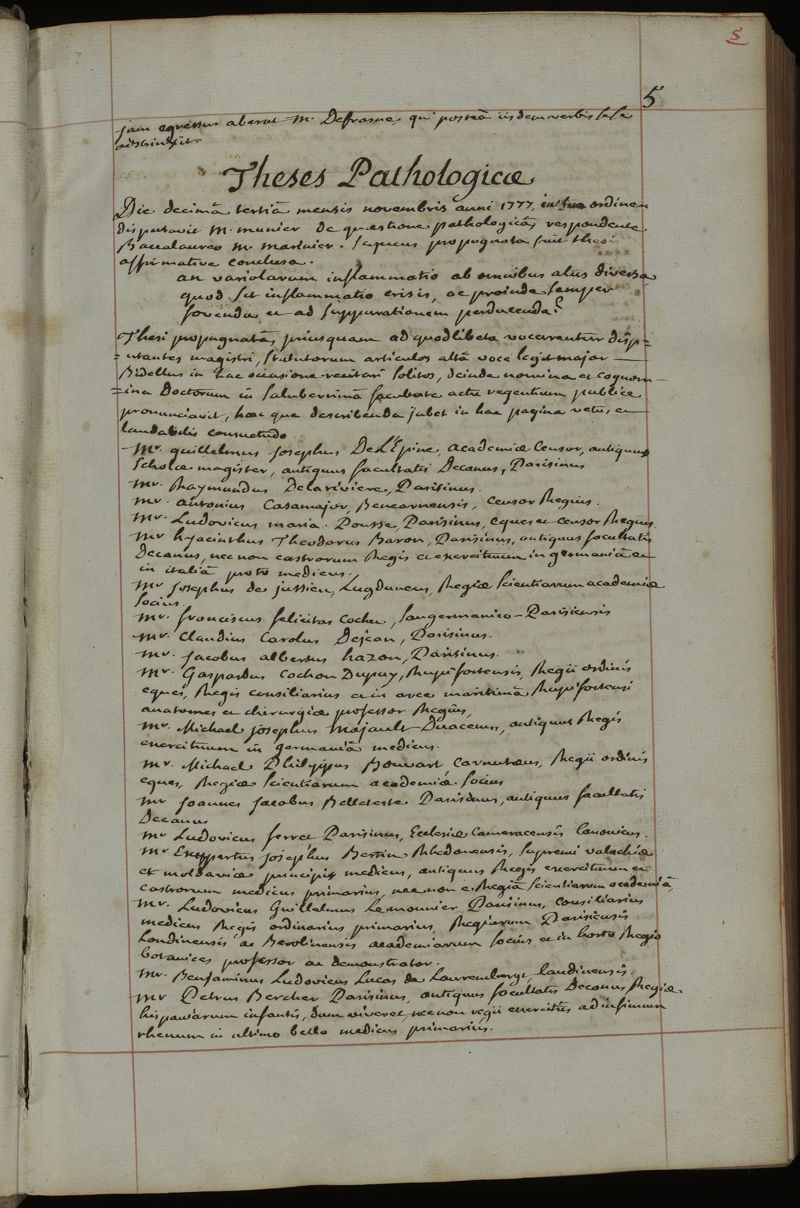 5
5
jam egressus aberat M. Defrasne, qui posteà iisdem verbis sese
adstrinxit.
Theses Pathologicæ
Die decimâ tertiâ mensis novembris anni 1777, in suo ordinem
disputavit M. munier de quæstione pathologicâ, respondente
Baccalaureo Mr. marinier. Sequens propugnata fuit thesis
affirmative conclusa.
an variolarum inflammatio ab omnibus aliis diversa
quod sit inflammatio crisis, ac proinde semper
fovenda et ad suppurationem perducenda?
Thesi propugnatâ, priusquam ad quodlibeta vocarentur disp=
=utantes magistri, statutorum articulos altâ voce legit major
Bidellus in hac occasione recitari solitos, deinde nomina et cognom-
=ina Doctorum in saluberrimâ facultate actu regentium publice
pronunciavit, hæc que describenda jubet in hac pagina vetus et
laudabilis consuetudo.
Mr. guillelmus josephus De L'Epine, academiæ Censor, antiquus
scholæ magister, antiquus facultatis Decanus, Parisinus
Mr. Raymundus Delariviere, Parisinus.
Mr. antonius Casamajor, Benearnensis, Censor Regius.
Mr. Ludovicus maria Pousse, Parisinus, eques et censor Regius.
Mr hyacinthus Theodorus Baron, Parisinus, antiquus facultatis
Decanus, nec non castrorum Regis et exercituum in germaniâ et
in italiâ proto medicus.
Mr josephus de jussieu, Lugdunens, Regiæ scientiarum academiæ
socius.
Mr. franciscus felicitas Cochu, sangermanico-Parisiensis
Mr. Claudius Carolus Dejean, Parisinus.
Mr. jacobus albertus hazon, Parisinus.
Mr. Gaspardus Cochon Dupuy, Rupifortensis, Regii ordinis
eques, Regis consiliarius et in arce maritimâ Rupifortensi
anatomes et chirurgiæ professor Regius,
Mr. Michael josephus Majault Duacenus, antiquus Regis
exercituum in germaniâ medicus.
Mr. Michael Philippus Bouvart Carnutæus, Regii ordinis
eques, Regiæ scientiarum academiæ socius
Mr joannes jacobus Belleteste Parisinus, antiquus facultatis
Decanus
Mr Ludovicus ferret Parisinus, Ecclesiæ Cameracensis Canonicus.
Mr Exuppertus josephus Bertin Rhedonensis, supremi valachiæ
et moldaviæ principis medicus, antiquus Regis exercituum et
castrorum medicus primarius, nec non e Regiâ scientiarum academiâ,
Mr. Ludovicus Guillelmus Lemonnier Parisinus, consiliarius
medicus Regis ordinarius primarius, Regiarum Parisiensis
Londinensis ac Berolinensis academiarum socius et in horto Regio
botanices professor ac demonstrator.
Mr. Benjaminus Ludovicus Lucas de Lauremberg, laudinensis.
Mr Petrus Bercher Parisinus, antiquus facultatis Decanus Regiæ
hispaniarum infantis, dum viveret, nec non regii exercitûs ad infimum
rhenum in ultimo bello medicus primarius.